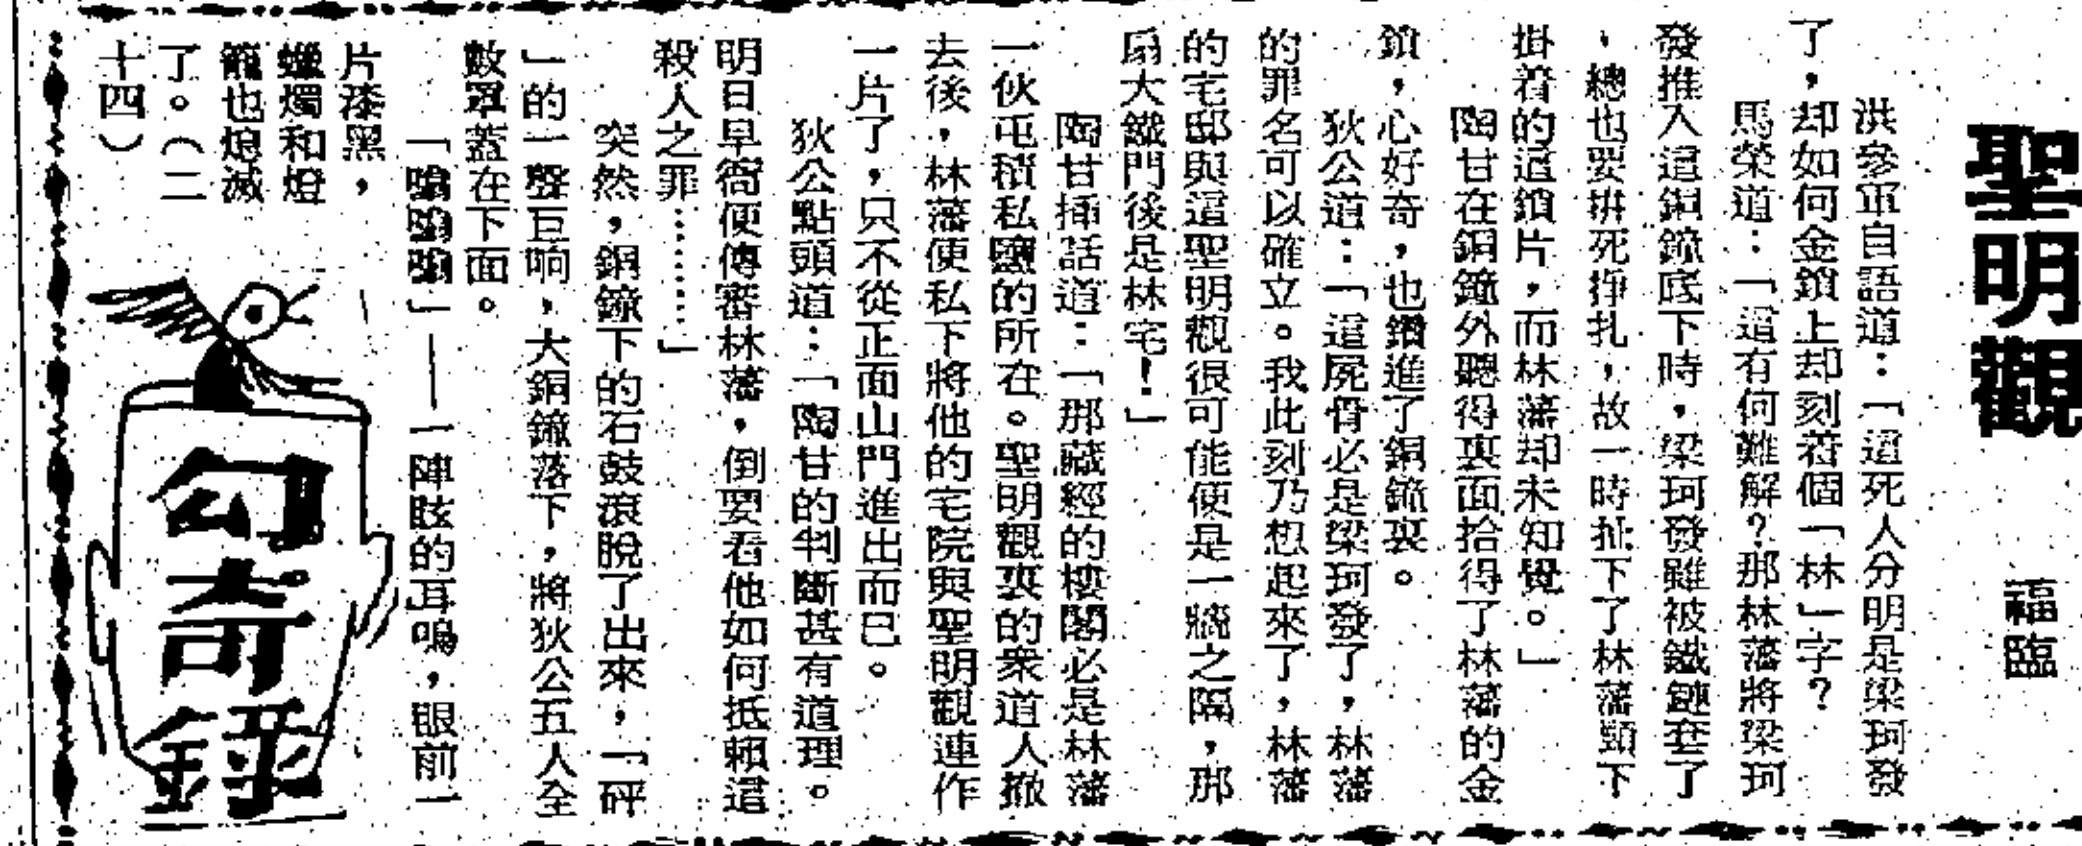 聖明觀
福臨
洪參軍自語道：「這死人分明是梁珂發
了，却如何金鎖上却刻着個「林」字？
馬榮道：「這有何難解？那林藩將梁珂
發推入這銅鐘底下時，梁珂發雖被鐵鏈套了
，總也要拚死掙扎，故一時扯下了林藩頸下
掛着的這鎖片，而林藩却未知覺。」
陶甘在銅鐘外聽得裏面拾得了林藩的金
鎖，心好奇，也鑽進了銅鐘裏。
狄公道：「這屍骨必是梁珂發了，林藩
的罪名可以確立。我此刻乃想起來了，林藩
的宅邸與這聖明觀很可能便是一牆之隔，那
扇大鐵門後是林宅！」
陶甘插話道：「那藏經的樓閣必是林藩
一伙屯積私鹽的所在。聖明觀裏的衆道人撤
去後，林藩便私下將他的宅院與聖明觀連作
一片了，只不從正面山門進出而已。
狄公點頭道：「陶甘的判斷甚有道理。
明日早衙便傳審林藩，倒要看他如何抵賴這
殺人之罪………」
突然，銅鐘下的石鼓滾脫了出來，「砰
」的一聲巨响，大銅鐘落下，將狄公五人全
數罩蓋在下面。
「嗡嗡嗡」——一陣眩的耳鳴，眼前一
片漆黑，
蠟燭和燈
籠也熄滅
了。（二
十四）
幻奇錄